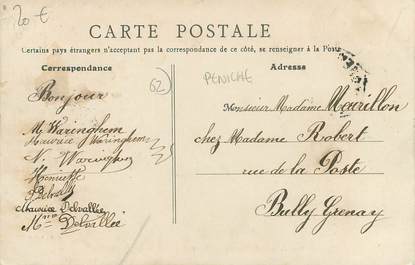 20 €
CARTE POSTALE
Certains pays étrangers n'acceptant pas la correspondance de ce côté, se renseigner à la Poste
Correspondance
Adresse
62
PENICHE
Bonjour
M Waringhem
Maurice Waringhem
Henriette
Maurice Delvallée
Mme Delvallée
Monsieur Madame Mourillon
chez Madame Robert
rue de la Poste
Bully Grenay